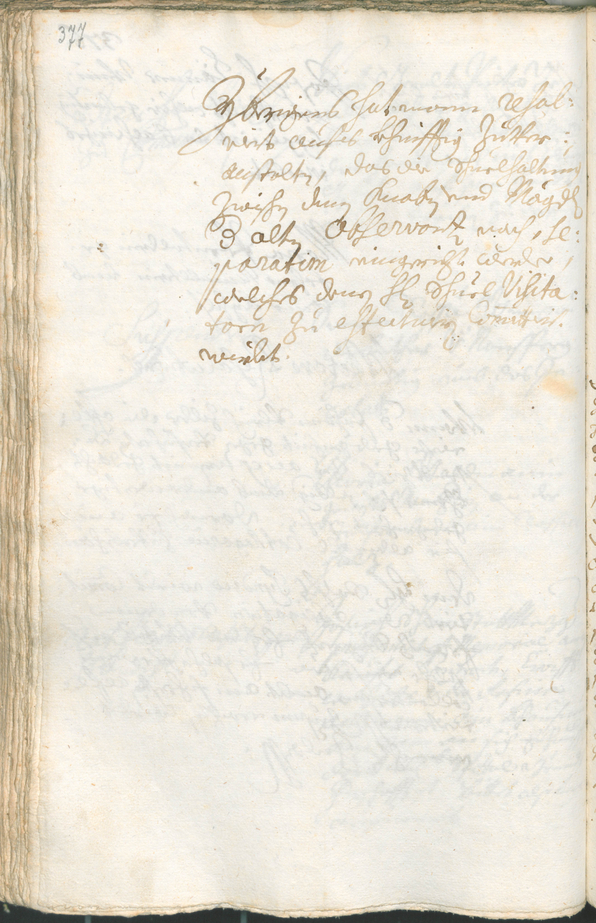 377
Übrigens hat mann resol:
virt auch künfftig
anstalten, das die Schuelhaltung
zwischen denen Knaben und Mägdl
d alten Observantz nach, se:
paratim eingericht werde,
welches denen HH Schuel Visita:
torn zu effectuiren Committirt
wirdet.